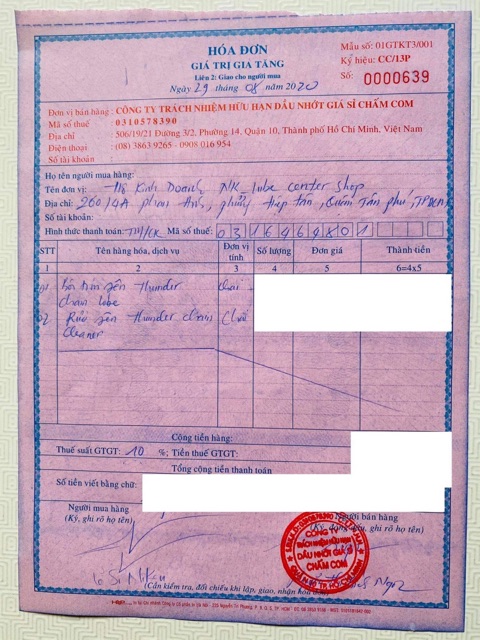 HÓA ĐƠN
GIÁ TRỊ GIA TĂNG
Liên 2: Giao cho người mua
Ngày 29 tháng 08 năm 2020
Mẫu số: 01GTKT3/001
Ký hiệu: CC/13P
Số: 0000639
Đơn vị bán hàng: CÔNG TY TRÁCH NHIỆM HỮU HẠN DẦU NHỚT GIÁ SỈ CHẤM COM
Mã số thuế : 0310578390
Địa chỉ : 506/19/21 Đường 3/2, Phường 14, Quận 10, Thành phố Hồ Chí Minh, Việt Nam
Điện thoại : (08) 3863 9265 - 0908 016 954
Số tài khoản :
Họ tên người mua hàng:
Tên đơn vị: Hộ Kinh Doanh NK_lube center shop
Địa chỉ: 260/4A phan Anh, phường Hiệp tân, Quận Tân phú, TPHCM
Số tài khoản:
Hình thức thanh toán: TM/CK Mã số thuế: 0316464801
STT Tên hàng hóa, dịch vụ Đơn vị tính Số lượng Đơn giá Thành tiền
1 2 3 4 5 6=4x5
01 sên thunder chai
chain lube
02 Rửa sên thunder chain Chai
cleaner
Cộng tiền hàng:
Thuế suất GTGT: 10 %; Tiền thuế GTGT:
Tổng cộng tiền thanh toán
Số tiền viết bằng chữ:
Người mua hàng Người bán hàng
(Ký, ghi rõ họ tên) (Ký,
CÔNG TY
TRÁCH NHIỆM HỮU HẠN
DẦU NHỚT GIÁ SỈ
CHẤM COM
(Cần kiểm tra, đối chiếu khi lập, giao, nhận hóa